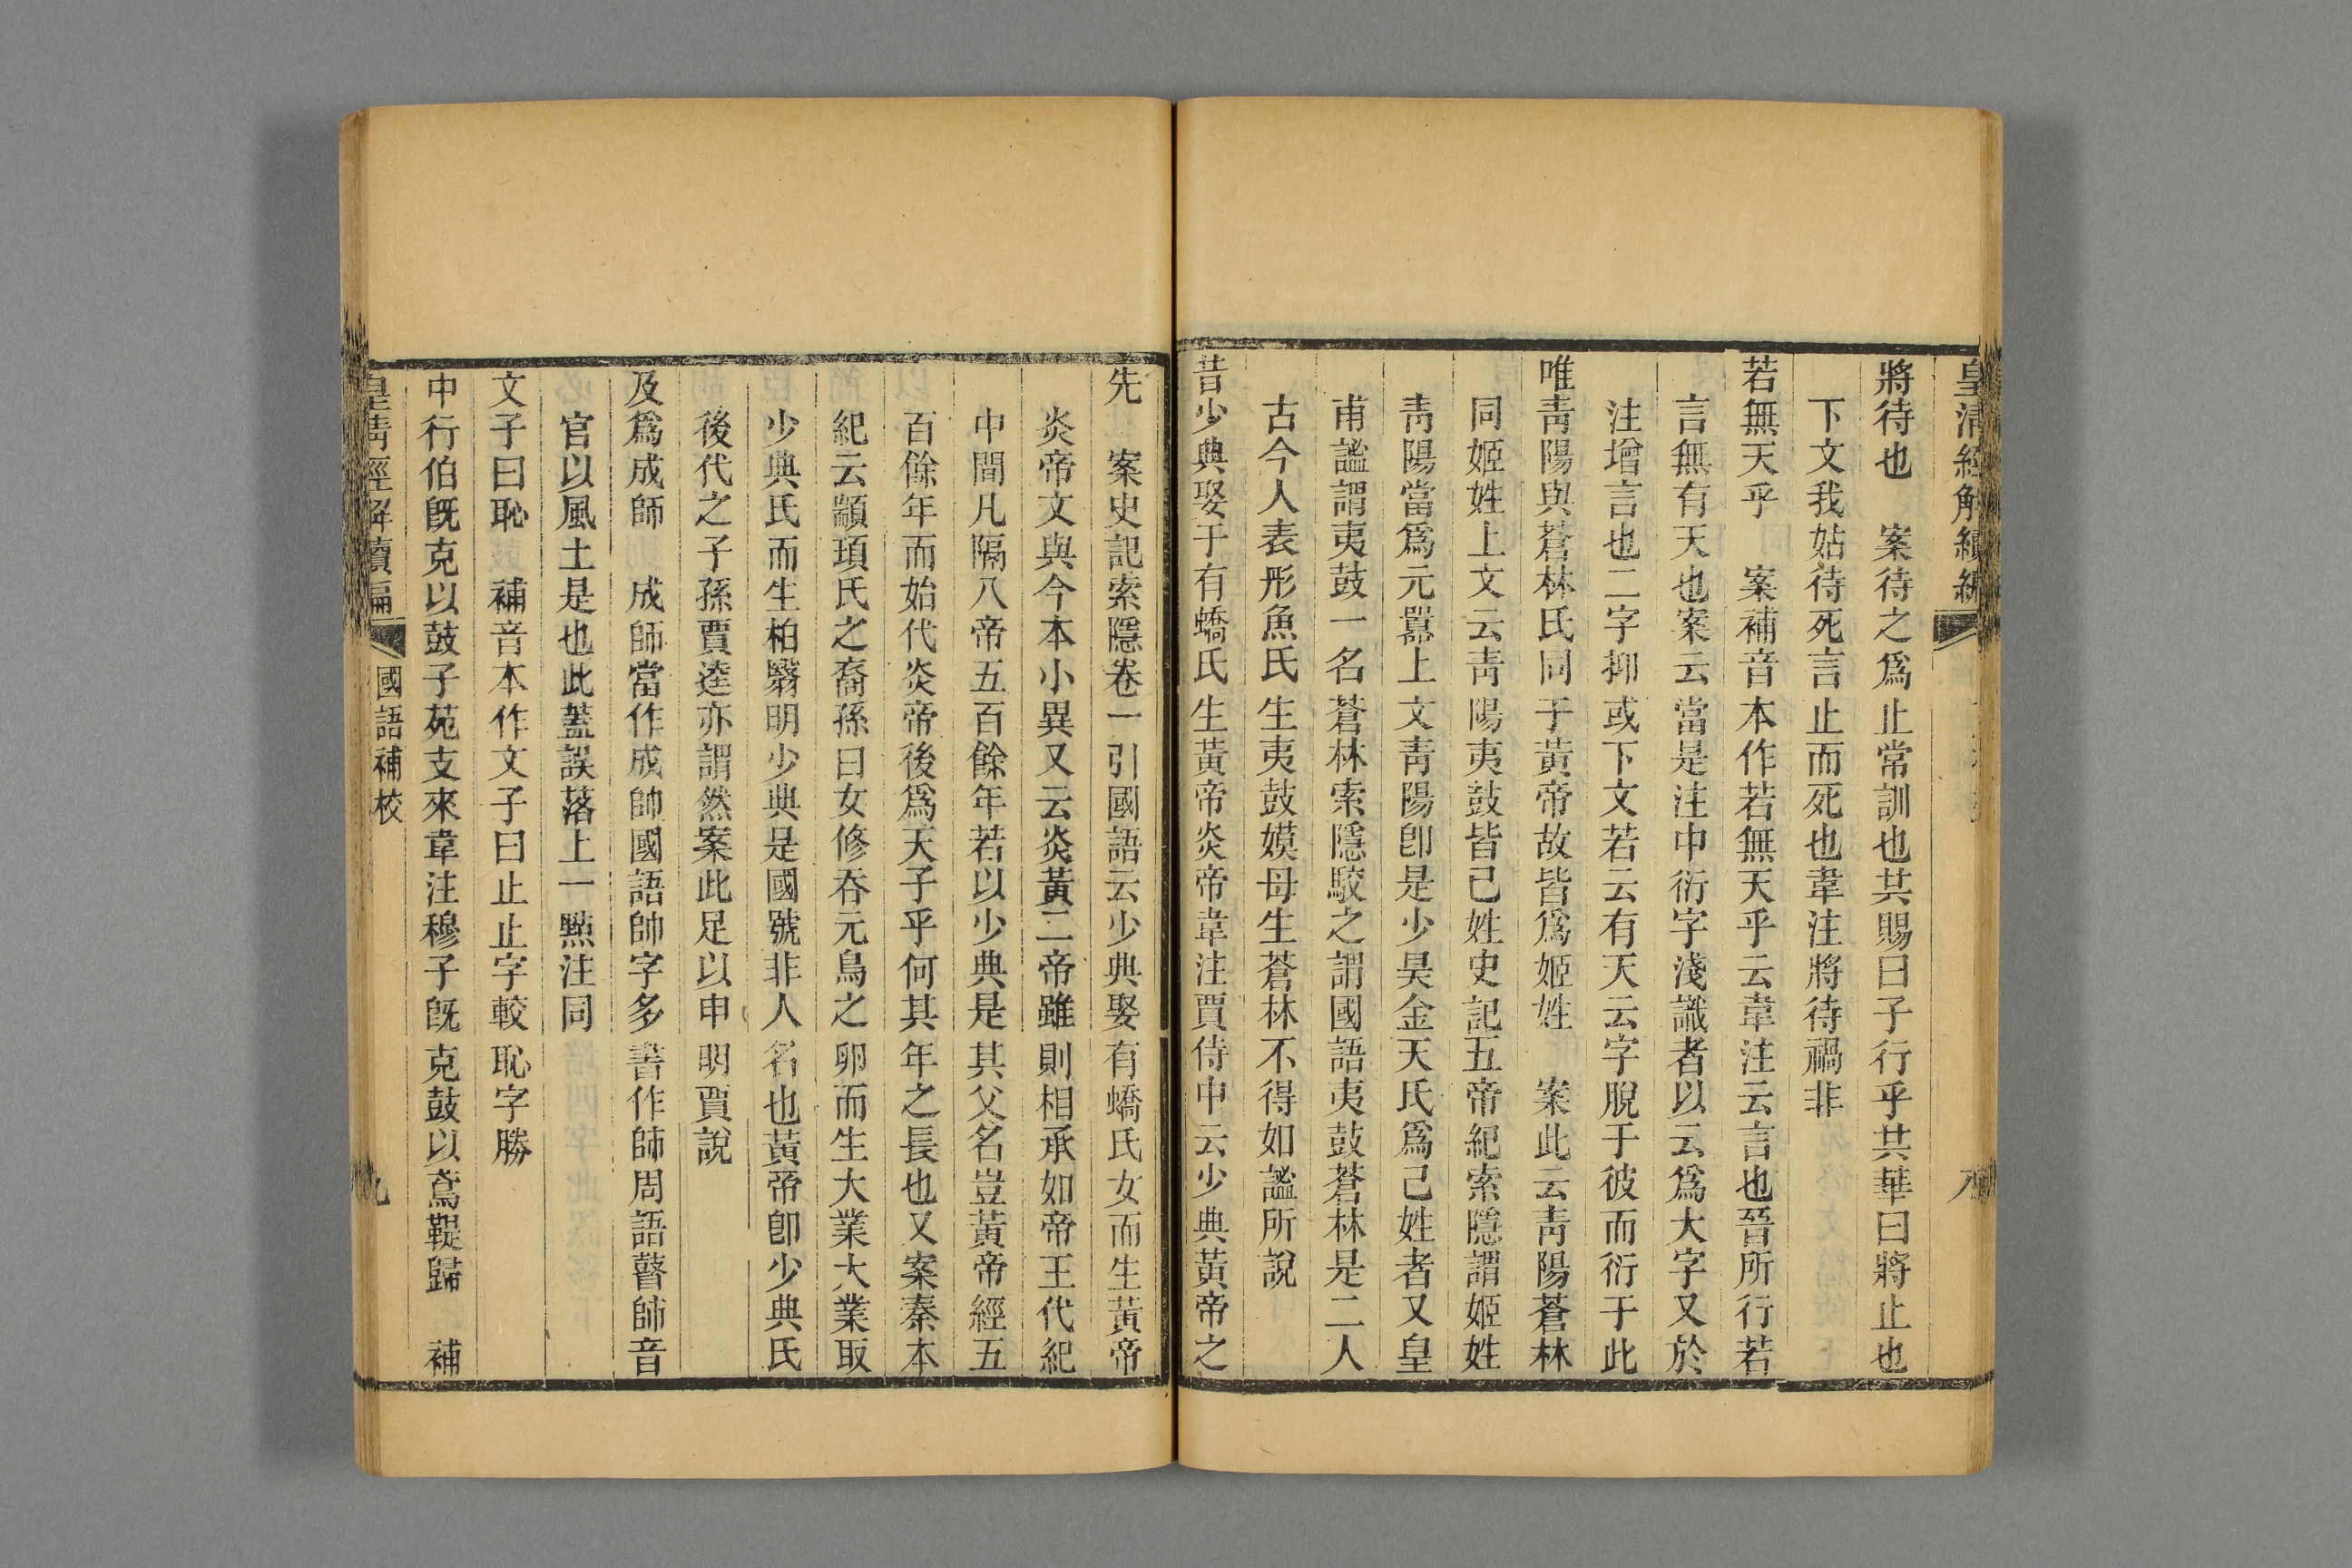 皇清經解續編
八
將待也　案待之爲止常訓也其賜曰子行乎其華曰將止也
下文我姑待死言止而死也韋注將待禍非
若無天乎　案補音本作若無天乎云韋注云言也晉所行若
言無有天也案云當是注中衍字淺識者以云爲大字又於
注增言也二字抑或下文若云有天云字脫于彼而衍于此
唯靑陽與蒼林氏同于黃帝故皆爲姬姓　案此云靑陽蒼林
同姬姓上文云靑陽夷鼓皆己姓史記五帝紀索隱謂姬姓
靑陽當爲元囂上文靑陽卽是少昊金天氏爲己姓者又皇
甫謐謂夷鼓一名蒼林索隱駮之謂國語夷鼓蒼林是二人
古今人表彤魚氏生夷鼓嫫母生蒼林不得如謐所說
昔少典娶于有蟜氏生黃帝炎帝韋注賈侍中云少典黃帝之
先　案史記索隱卷一引國語云少典娶有蟜氏女而生黃帝
炎帝文與今本小異又云炎黃二帝雖則相承如帝王代紀
中閒凡隔八帝五百餘年若以少典是其父名豈黃帝經五
百餘年而始代炎帝後爲天子乎何其年之長也又案秦本
紀云顓頊氏之裔孫曰女修吞元鳥之卵而生大業大業取
少典氏而生柏翳明少典是國號非人名也黃帝卽少典氏
後代之子孫賈逵亦謂然案此足以申明賈說
及爲成師　成師當作成帥國語帥字多書作師周語瞽師音
官以風土是也此蓋誤落上一㸃注同
文子曰恥　補音本作文子曰止止字較恥字勝
中行伯旣克以鼓子苑支來韋注穆子旣克鼓以鳶鞮歸　補
皇清經解續編
國語補校
九